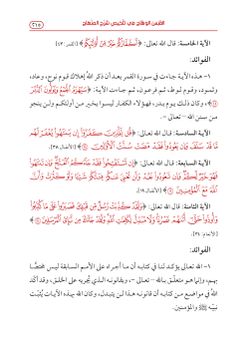 القبس الوهاج في تلخيص شرح المنهاج
٢١٥
الآية الخامسة: قال الله تعالى: ﴿أَكُفَّارُكُمْ خَيْرٌ مِّنْ أُوْلَٰٓئِكُمْ﴾ [القمر: ٤٣]
الفوائد:
١- هذه الآية جاءت في سورة القمر بعد أن ذكر الله إهلاك قوم نوح، وعاد،
وثمود، وقوم لوط، ثم فرعون، ثم جاءت الآية: ﴿سَيُهْزَمُ ٱلْجَمْعُ وَيُوَلُّونَ ٱلدُّبُرَ
﴾، وكان ذلك يوم بدر، فهؤلاء الكفار ليسوا بخير من أولئكم ولن ينجو
من سنن الله - تعالى -.
الآية السادسة: قال الله تعالى: ﴿قُل لِّلَّذِينَ كَفَرُوٓاْ إِن يَنتَهُواْ يُغْفَرْ لَهُم
مَّا قَدْ سَلَفَ وَإِن يَعُودُواْ فَقَدْ مَضَتْ سُنَّتُ ٱلْأَوَّلِينَ﴾ [الأنفال: ٣٨].
الآية السابعة: قال الله تعالى: ﴿إِن تَسْتَفْتِحُواْ فَقَدْ جَآءَكُمُ ٱلْفَتْحُ وَإِن تَنتَهُواْ
فَهُوَ خَيْرٌ لَّكُمْ وَإِن تَعُودُواْ نَعُدْ وَلَن تُغْنِيَ عَنكُمْ فِئَتُكُمْ شَيْـًٔا وَلَوْ كَثُرَتْ وَأَنَّ
ٱللَّهَ مَعَ ٱلْمُؤْمِنِينَ﴾ [الأنفال: ١٩].
الآية الثامنة: قال الله تعالى: ﴿وَلَقَدْ كُذِّبَتْ رُسُلٌ مِّن قَبْلِكَ فَصَبَرُواْ عَلَىٰ مَا كُذِّبُواْ
وَأُوذُواْ حَتَّىٰٓ أَتَىٰهُمْ نَصْرُنَا وَلَا مُبَدِّلَ لِكَلِمَٰتِ ٱللَّهِ وَلَقَدْ جَآءَكَ مِن نَّبَإِيْ ٱلْمُرْسَلِينَ﴾
[الأنعام: ٣٤].
الفوائد:
١- الله تعالى يؤكد لنا في كتابه أن ما أجراه على الأمم السابقة ليس مختصًا
بهم، وإنما هو متعلق بالله - تعالى -، وبقانونه الذي يجريه على الخلق، وقد أكد
الله في مواضع من كتابه أن قانونه هذا لن يتبدل، وكان الله بهذه الآيات يُثبِّت
نبيه ﷺ والمؤمنين.